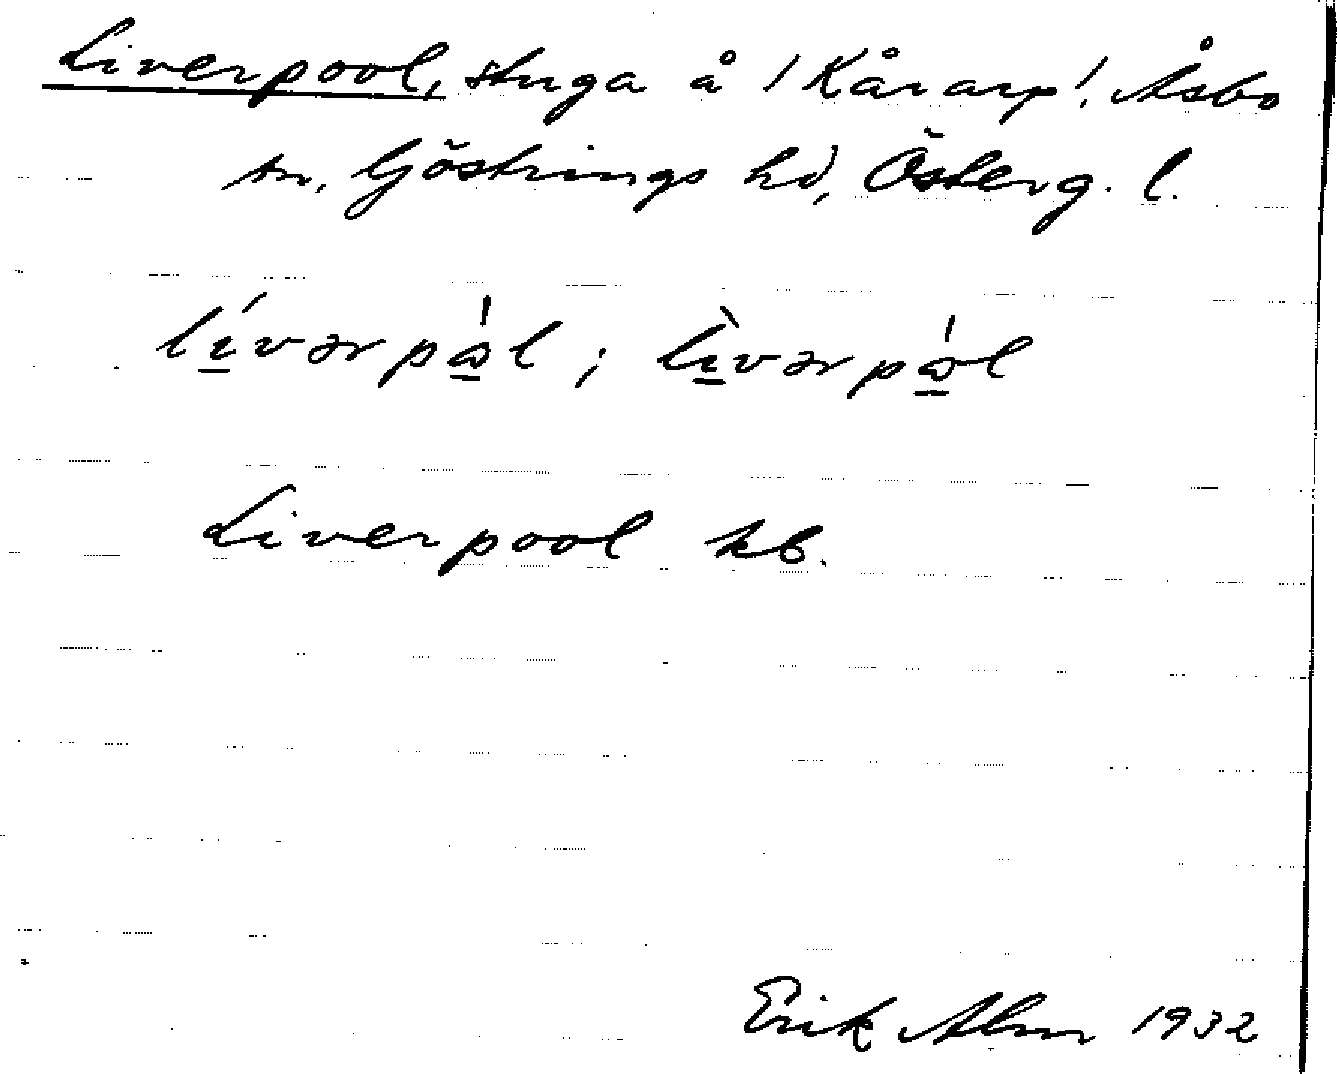 Liverpool, stuga å /Kårarp/, Åsbo
sn, Göstrings hd, Österg. l.
li̱vərpå̱l ; li̱vərpå̱l
Liverpool kb.
Erik Alm 1932